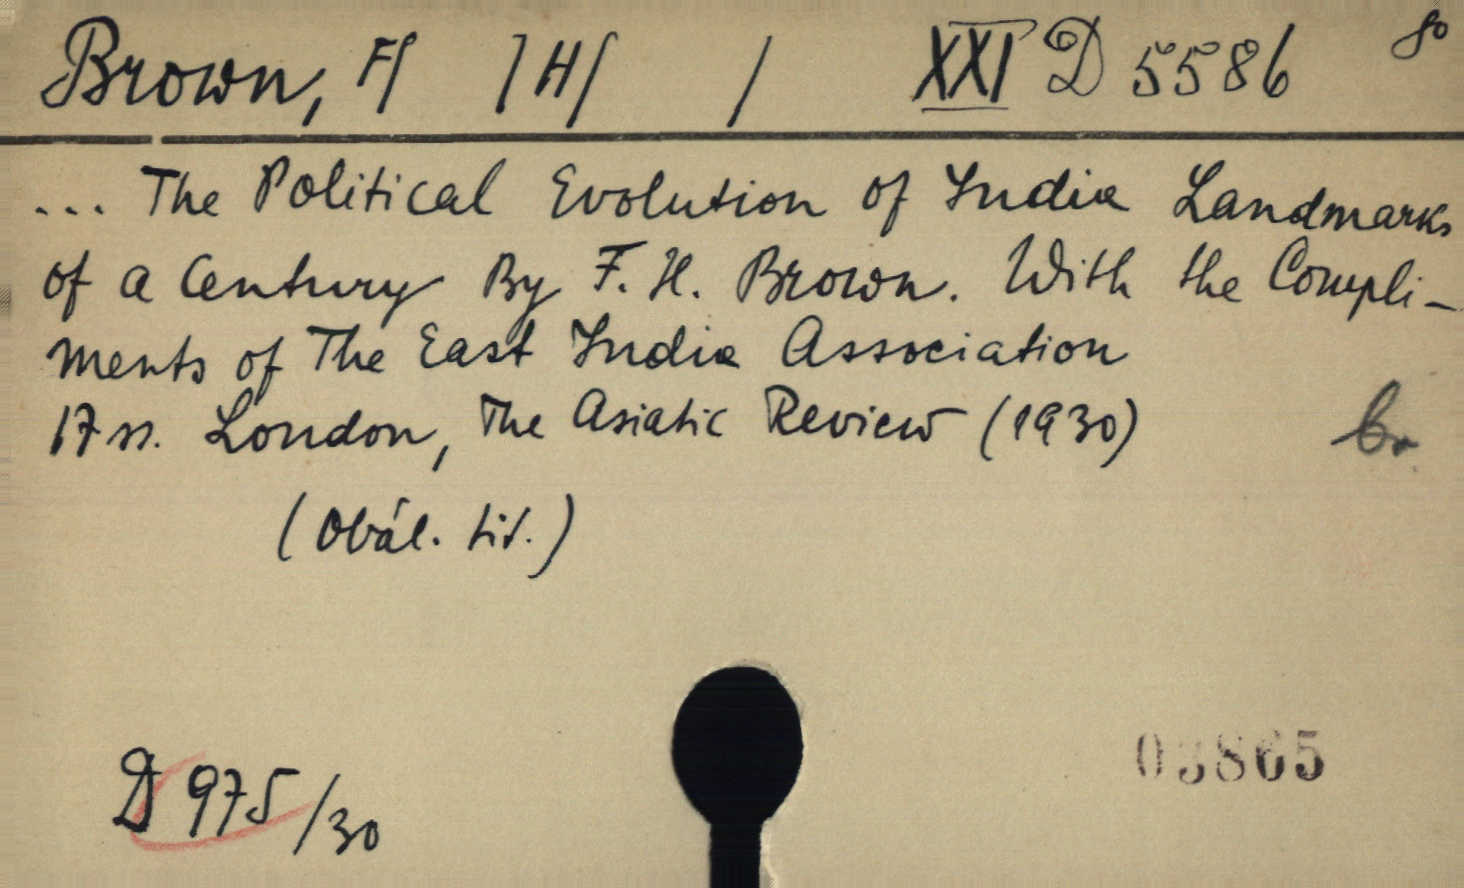 Brown, F/ /H/ / XXI D 5586 8o
... The Political Evolution of India Landmarks
of a Century By F. H. Brown. With the Compli-
ments of The East India Association
17 ss. London, The Asiatic Review (1930)
(Obál. tit.)
D 975/30
03865